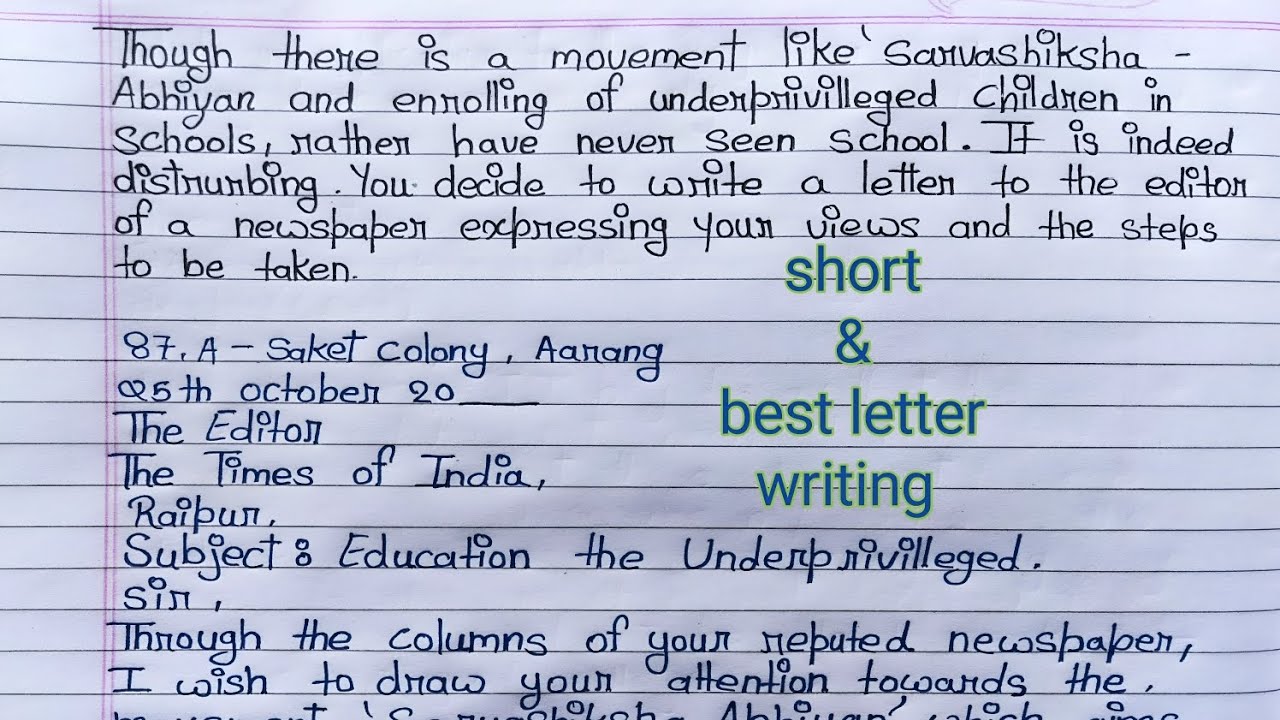 Though there is a movement like 'Sarvashiksha -
Abhiyan and enrolling of underprivilleged children in
Schools, rather have never seen school. It is indeed
distrurbing. You decide to write a letter to the editor
of a newspaper expressing your views and the steps
to be taken.
short
&
best letter
writing
87, A - Saket colony, Aarang
25th october 20____
The Editor
The Times of India,
Raipur,
Subject : Education the Underprivilleged.
Sir,
Through the columns of your reputed newspaper,
I wish to draw your attention towards the.
movement 'Sarvashiksha Abhiyan' which aims